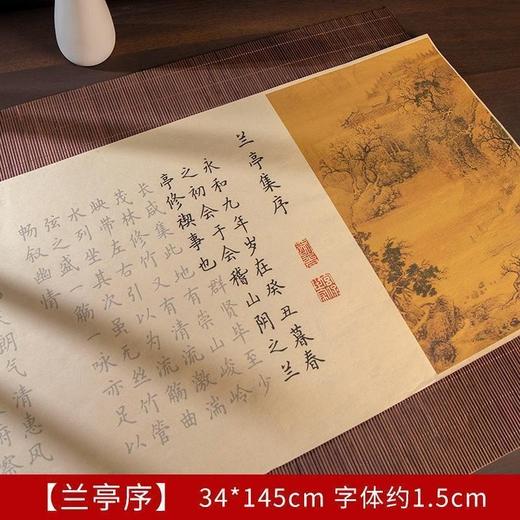 兰亭集序
永和九年岁在癸丑暮春
之初会于会稽山阴之兰
亭修禊事也群贤毕至少
长咸集此地有崇山峻岭
茂林修竹又有清流激湍
映带左右引以为流觞曲
水列坐其次虽无丝竹管
弦之盛一觞一咏亦足以
畅叙幽情
天朗气清惠风
府察
【兰亭序】 34*145cm 字体约1.5cm